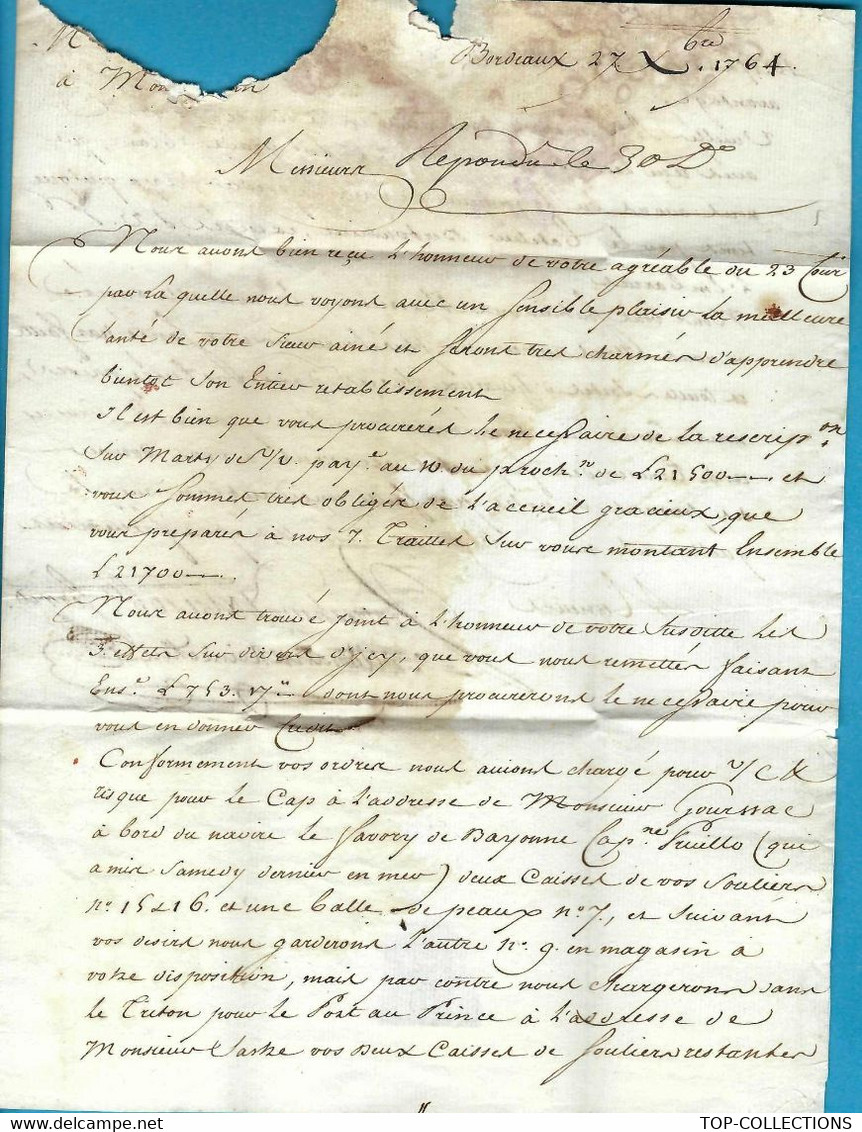 Bordeaux 27 Xbre 1764.
à Mon
Messieurs Répondu le 30 Do
Nous avons bien reçu l'honneur de votre agréable du 23 Cour
par la quelle nous voyons avec un sensible plaisir la meilleure
santé de votre sieur ainé et serons tres charmés d'apprendre
bientot son Entier retablissement
Il est bien que vous procurerés le necessaire de la rescripon
sur Marty de paye au 10 du prochn de £21500 — et
vous sommes tres obligés de l'accueil gracieux que
vous preparés à nos 7. Traittes sur vous montant Ensemble
£21700 —.
Nous avons trouvé joint à l'honneur de votre susditte les
3. effets sur divers d'jcy, que vous nous remettés faisant
Ense £753.17 dont nous procurerons le necessaire pour
vous en donner Credit
Conformement vos ordres nous avions chargé pour v/c &
risque pour le Cap à l'addresse de Monsieur Gourssac
à bord du navire le Savory de Bayonne Capne (qui
a mis samedy dernier en mer) deux Caisses de vos souliers
no. 15 & 16. et une balle de peaux no. 7, et suivant
vos desirs nous garderons l'autre no. 9. en magasin à
votre disposition, mais par contre nous chargerons dans
le Triton pour le Port au Prince à l'addresse de
Monsieur vos deux Caisses de souliers restantes
TOP-COLLECTIONS